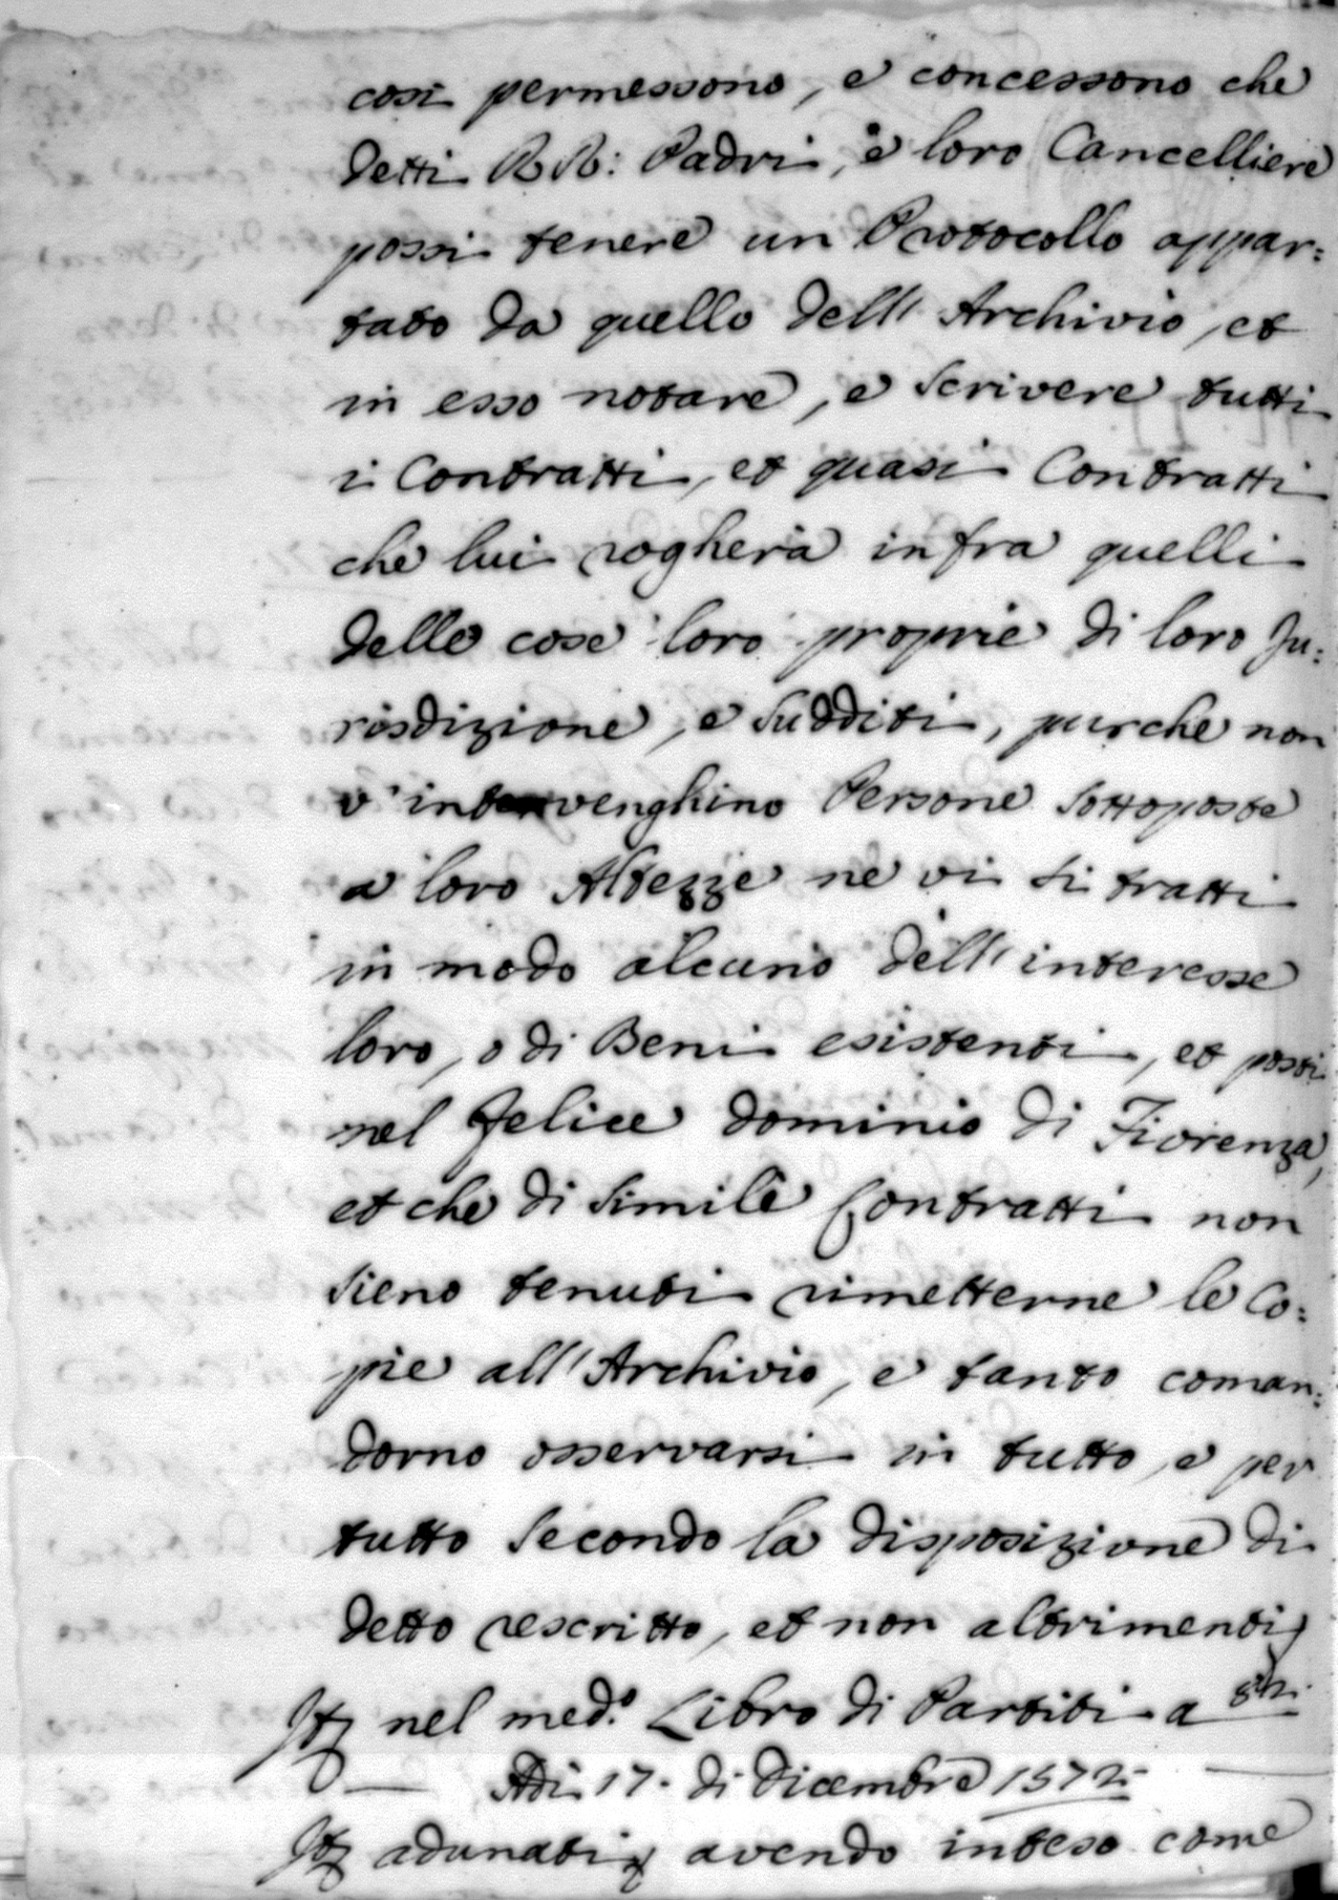 così permessono, e concessono che
detti RR: Padri, e loro Cancelliere
possi tenere un Protocollo appar=
tato da quello dell' Archivio, et
in esso notare, e scrivere tutti
i Contratti, et quasi Contratti
che lui rogherà infra quelli
delle cose loro proprie di loro Ju=
risdizione, e sudditi, purche non
v' intervenghino Persone sottoposte
a loro Altezze ne vi si tratti
in modo alcuno dell' interesse
loro, o di Beni esistenti, et posti
nel felice dominio di Fiorenza,
et che di simile Contratti non
sieno tenuti rimetterne le Co=
pie all' Archivio, e tanto coman=
dorno osservarsi in tutto, e per
tutto secondo la disposizione di
detto rescritto, et non altrimenti
It nel med.º Libro di Partiti a
Adi 17. di Dicembre 1572
It adunati avendo inteso come